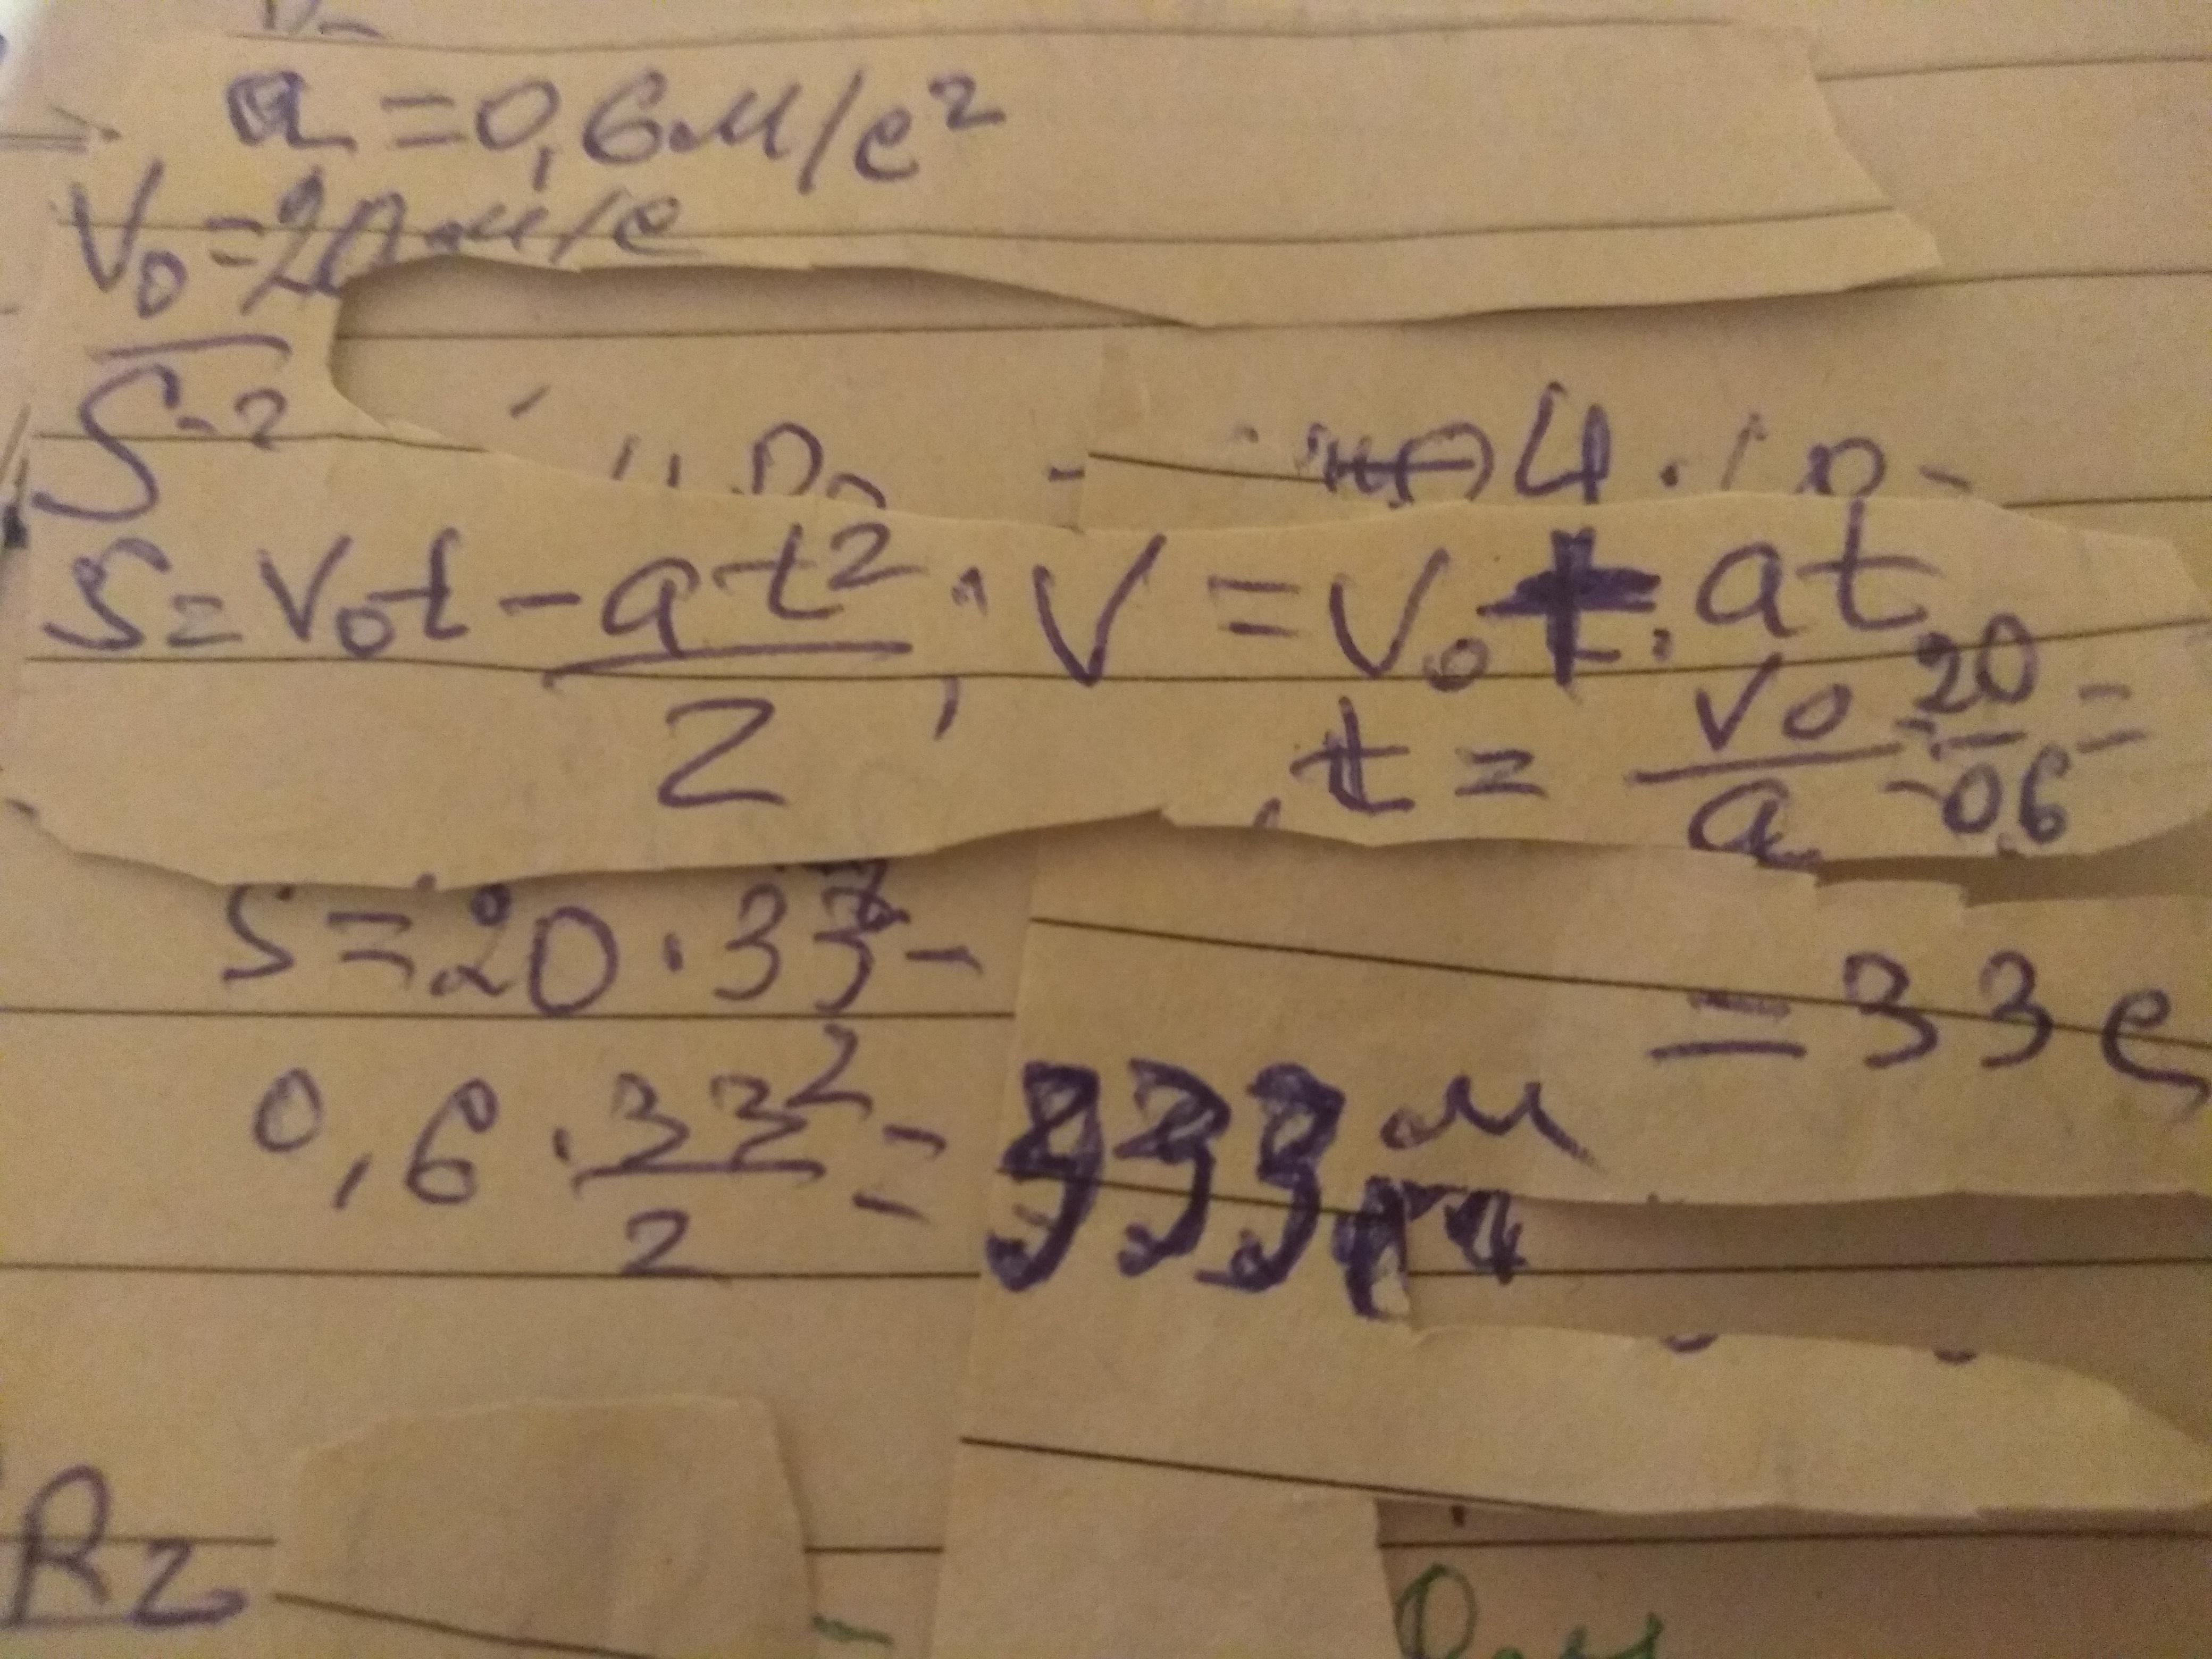 a = 0,6 м/с²
V₀ = 20 м/с
S - ?
4 ·
S = V₀t - at²/2 ; V = V₀ + at
t = V₀/a = 20/0,6 =
S = 20 · 33 -
= 33 с
0,6 · 33²/2 = 333 м
R₂